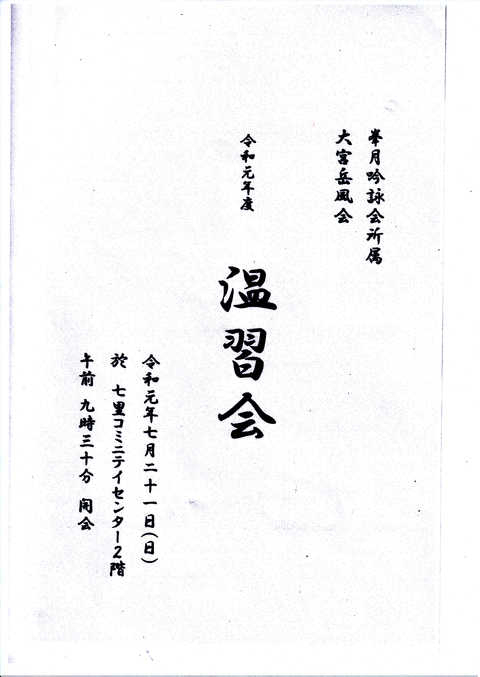 峯月吟詠会所属
大宮岳風会
令和元年度
温習会
令和元年七月二十一日(日)
於 七里コミニテイセンター2階
午前 九時三十分 開会